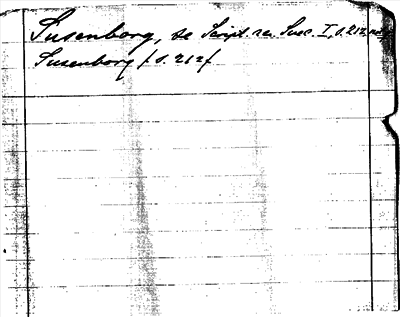 Susenborg, se Script. rer. Suec. I, s. 212
Susenborg / s. 212 /